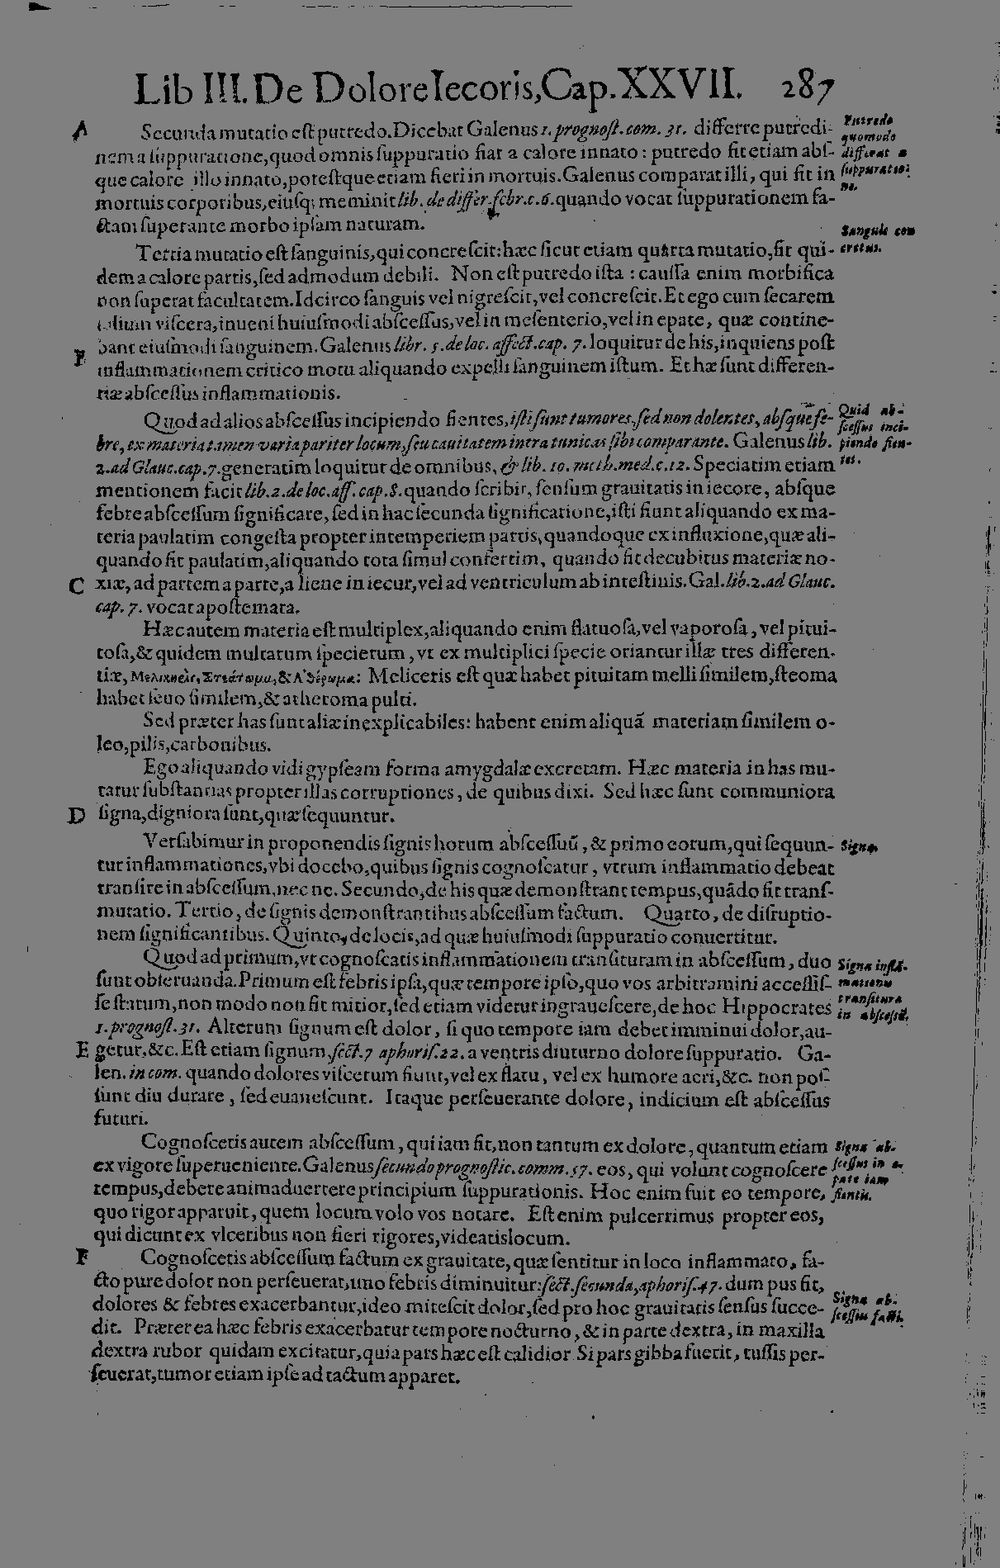 Lib III. De Dolore Iecoris, Cap. XXVII. 287
A Secunda mutatio est putredo. Dicebat Galenus 1. prognost. com. 31. differre putredi-
nem a suppuratione, quod omnis suppuratio fiat a calore innato: putredo fit etiam abs-
que calore illo innato, potestque etiam fieri in mortuis. Galenus comparat illi, qui fit in
mortuis corporibus, eiusq; meminit lib. de differ. febr. c. 6. quando vocat suppurationem fa-
ctam superante morbo ipsam naturam.
Putredo
quomodo
differat a
suppuratio-
ne.
Tertia mutatio est sanguinis, qui concrescit: hæc sicut etiam quarta mutatio, fit qui-
dem a calore partis, sed admodum debili. Non est putredo ista: caussa enim morbifica
non superat facultatem. Idcirco sanguis vel nigrescit, vel concrescit. Et ego cum secarem
viscera, inueni huiusmodi abscessus, vel in mesenterio, vel in epate, quæ contine-
bant eiusmodi sanguinem. Galenus libr. 5. de loc. affect. cap. 7. loquitur de his, inquiens post
inflammationem critico motu aliquando expelli sanguinem istum. Et hæ sunt differen-
tiæ abscessus inflammationis.
Sanguis con
cretus.
Quod ad alios abscessus incipiendo fientes, isti sunt tumores, sed non dolentes, absque fe-
bre, ex materia tamen varia pariter locum, seu cauitatem intra tunicas sibi comparante. Galenus lib.
2. ad Glauc. cap. 7. generatim loquitur de omnibus, & lib. 10. meth. med. c. 12. Speciatim etiam
mentionem facit lib. 2. de loc. aff. cap. 8. quando scribit, sensum grauitatis in iecore, absque
febre abscessum significare, sed in hac secunda significatione, isti fiunt aliquando ex ma-
teria paulatim congesta propter intemperiem partis, quandoque ex influxione, quæ ali-
quando fit paulatim, aliquando tota simul confertim, quando fit decubitus materiæ no-
C xiæ, ad partem a parte, a liene in iecur, vel ad ventriculum ab intestinis. Gal. lib. 2. ad Glauc.
cap. 7. vocat apostemata.
Quid ab-
scessus inci-
piendo fien-
tes.
Hæc autem materia est multiplex, aliquando enim flatuosa, vel vaporosa, vel pitui-
tosa, & quidem multarum specierum, vt ex multiplici specie oriantur illæ tres differen-
tiæ, Μελικηρὶς, Στεάτωμα, & Ἀθέρωμα: Meliceris est quæ habet pituitam melli similem, steoma
habet seuo similem, & atheroma pulti.
Sed præter has sunt aliæ inexplicabiles: habent enim aliquã materiam similem o-
leo, pilis, carbonibus.
Ego aliquando vidi gypseam forma amygdalæ excretam. Hæc materia in has mu-
tatur substantias propter illas corruptiones, de quibus dixi. Sed hæc sunt communiora
D signa, digniora sunt, quæ sequuntur.
Versabimur in proponendis signis horum abscessuũ, & primo eorum, qui sequun-
tur inflammationes, vbi docebo, quibus signis cognoscatur, vtrum inflammatio debeat
transire in abscessum, nec ne. Secundo, de his quæ demonstrant tempus, quãdo fit trans-
mutatio. Tertio, de signis demonstrantibus abscessum factum. Quarto, de disruptio-
nem significantibus. Quinto, de locis, ad quæ huiusmodi suppuratio conuertitur.
Signa.
Quod ad primum, vt cognoscatis inflammationem transituram in abscessum, duo
sunt obseruanda. Primum est febris ipsa, quæ tempore ipso, quo vos arbitramini accessis-
se statum, non modo non fit mitior, sed etiam videtur ingrauescere, de hoc Hippocrates
1. prognost. 31. Alterum signum est dolor, si quo tempore iam debet imminui dolor, au-
E getur, &c. Est etiam signum, sect. 7 aphoris. 22. a ventris diuturno dolore suppuratio. Ga-
len. in com. quando dolores viscerum fiunt, vel ex flatu, vel ex humore acri, &c. non pos-
sunt diu durare, sed euanescunt. Itaque perseuerante dolore, indicium est abscessus
futuri.
Signa inflã-
mationis
transitura
in abscessũ.
Cognoscetis autem abscessum, qui iam fit, non tantum ex dolore, quantum etiam
ex vigore superueniente. Galenus secundo prognostic. comm. 57. eos, qui volunt cognoscere
tempus, debere animaduertere principium suppurationis. Hoc enim fuit eo tempore,
quo rigor apparuit, quem locum volo vos notare. Est enim pulcerrimus propter eos,
qui dicunt ex vlceribus non fieri rigores, videatis locum.
Signa ab-
scessus in e-
pate iam
fientis.
F Cognoscetis abscessum factum ex grauitate, quæ sentitur in loco inflammato, fa-
cto pure dolor non perseuerat, imo febris diminuitur: sect. secunda, aphoris. 47. dum pus fit,
dolores & febres exacerbantur, ideo mitescit dolor, sed pro hoc grauitatis sensus succe-
dit. Præterea hæc febris exacerbatur tempore nocturno, & in parte dextra, in maxilla
dextra rubor quidam excitatur, quia pars hæc est calidior. Si pars gibba fuerit, tussis per-
seuerat, tumor etiam ipse ad tactum apparet.
Signa ab-
scessus facti.